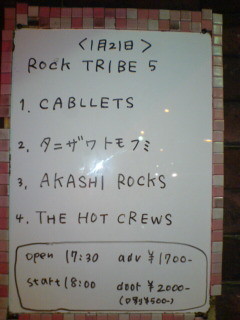 〈1月21日〉
Rock TRIBE 5
1. CABLLETS
2. タニザワトモフミ
3. AKASHI ROCKS
4. THE HOT CREWS
open 17:30 adv ¥1700-
start 18:00 door ¥2000-
(D別¥500-)